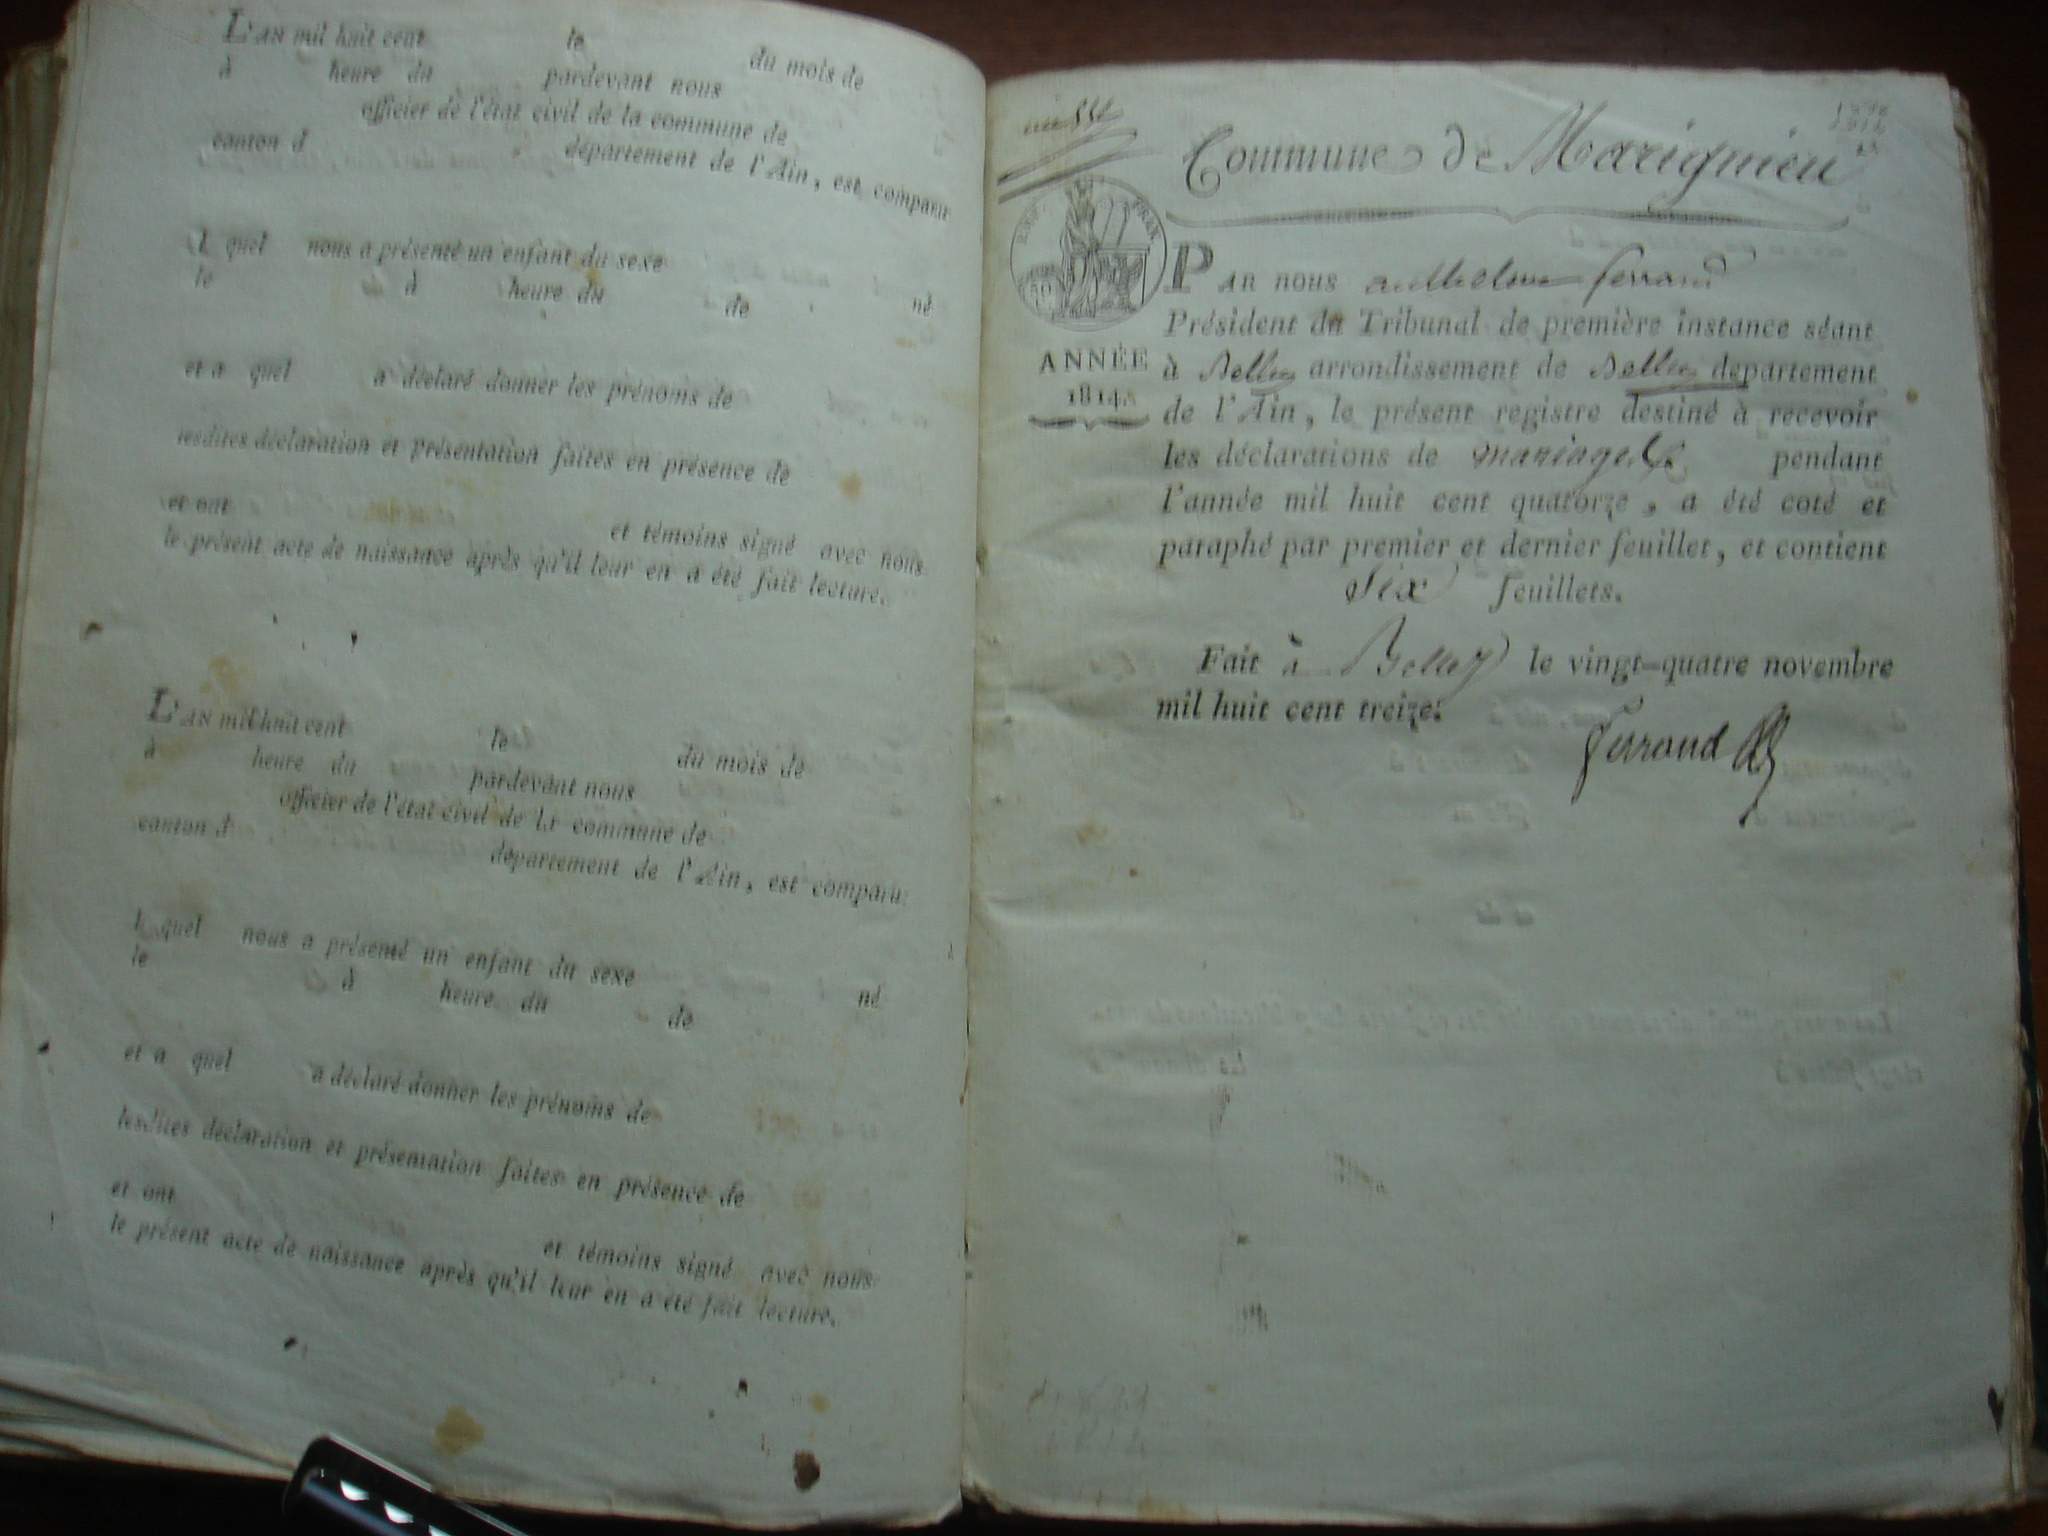 L'AN mil huit cent le du mois de
à heure du pardevant nous
officier de l'état civil de la commune de
canton d département de l'Ain, est comparu
l quel nous a présenté un enfant du sexe né
le à heure du de
et a quel a déclaré donner les prénoms de
lesdites déclaration et présentation faites en présence de
et ont et témoins signé avec nous
le présent acte de naissance après qu'il leur en a été fait lecture.
L'AN mil huit cent le du mois de
à heure du pardevant nous
officier de l'état civil de la commune de
canton d département de l'Ain, est comparu
l quel nous a présenté un enfant du sexe né
le à heure du de
et a quel a déclaré donner les prénoms de
lesdites déclaration et présentation faites en présence de
et ont et témoins signé avec nous
le présent acte de naissance après qu'il leur en a été fait lecture.
Commune de Marignieu
ANNÉE
1814.
PAR nous anthelme ferrand
Président du Tribunal de première instance séant
à Belley arrondissement de Belley département
de l'Ain, le présent registre destiné à recevoir
les déclarations de mariages pendant
l'année mil huit cent quatorze, a été coté et
paraphé par premier et dernier feuillet, et contient
Six feuillets.
Fait à Belley le vingt-quatre novembre
mil huit cent treize.
Ferrand